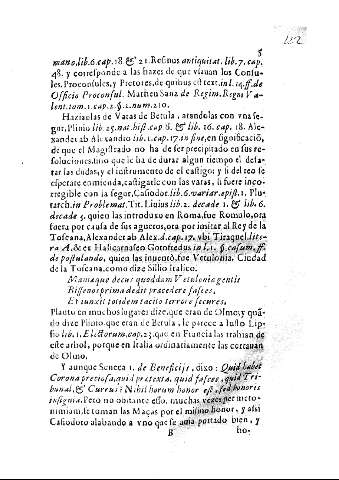 5
mano, lib. 6. cap. 18. & 21. Resinus antiquitat. lib. 7. cap.
48. y corresponde a las hazes de que vsauan los Consu-
les, Proconsules, y Pretores, de quibus est text. in l. 14. ff. de
Officio Proconsul. Matheu Sanz de Regim. Regni Va-
lent. tom. 1. cap. 2. §. 1. num. 210.
Hazianlas de Varas de Betula, atandolas con vna se-
gur, Plinio lib. 25. nat. hist. cap. 6. & lib. 16. cap. 18. Ale-
xander ab Alexandro lib. 1. cap. 17. in fine, en significació,
de que el Magistrado no ha de ser precipitado en sus re-
soluciones, sino que le ha de durar algun tiempo el desa-
tar las dudas, y el instrumento de el castigo; y si del reo se
esperare enmienda, castigarle con las varas, si fuere inco-
rregible con la segur, Casiodor. lib. 6. variar. epist. 1. Plu-
tarch. in Problemat. Tit. Liuius lib. 2. decade 1. & lib. 6.
decade 3. quien las introduxo en Roma, fue Romulo, ora
fuera por causa de sus agueros, ora por imitar al Rey de la
Toscana, Alexander ab Alex. d. cap. 17. vbi Tiraquel. lite-
ra A. & ex Halicarnaseo Gotofredus in l. 1. §. casum. ff.
de postulando, quien las inuentò, fue Vetulonia, Ciudad
de la Toscana, como dize Silio Italico.
Mæniaque decus quoddam Vetulonia gentis
Bissenos prima dedit præcedere fasces,
Et iunxit totidem tacito terrore secures,
Plauto en muchos lugares dize, que eran de Olmo; y quã-
do dize Plinio, que eran de Betula, le parece a Iusto Lip-
sio lib. 1. Electorum. cap. 23. que en Francia las trahian de
este arbol, porque en Italia ordinariamente las cortauan
de Olmo.
Y aunque Seneca 1. de Beneficijs, dixo: Quid habet
Corona preciosa, quid prætexta, quid fasces, quid Tri-
bunal, & Currus? Nihil horum honor est, sed honoris
insignia. Pero no obstante esso, muchas vezes per meto-
nimiam, se toman las Maças por el mismo honor, y assi
Casiodoro alabando a vno que se auia portado bien, y
B
ho-